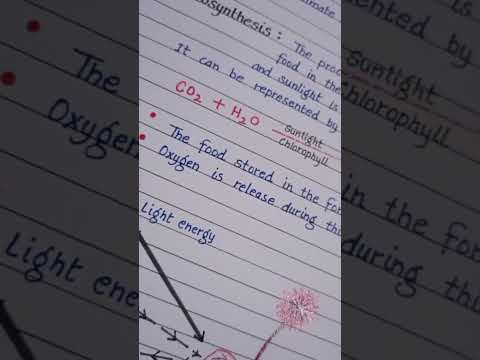 osynthesis :
The
food in the
and sunlight is
It can be represented by
CO2 + H2O sunlight
chlorophyll
The food stored in the
Oxygen is release during
Light energy